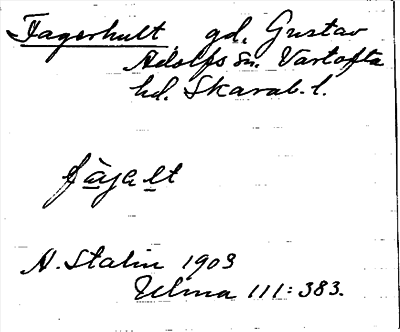 Fagerhult gd, Gustav
Adolfs sn. Vartofta
hd. Skarab. l.
fàjelt
N. Stalin 1903
Ulma 111:383.